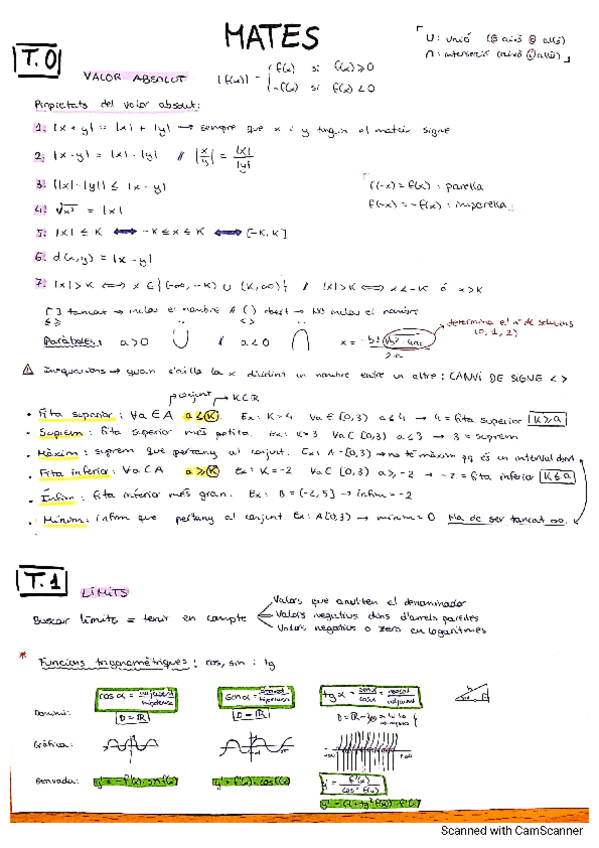 MATES
U: unió (ó això ó allò)
∩: intersecció (això i allò)
T.0
VALOR ABSOLUT |f(x)| = { f(x) si f(x) ≥ 0
-f(x) si f(x) < 0
Propietats del valor absolut:
1. |x + y| = |x| + |y| → sempre que x i y tinguin el mateix signe
2. |x · y| = |x| · |y| // |x/y| = |x|/|y|
3. ||x| - |y|| ≤ |x - y|
f(-x) = f(x) : parella
f(-x) = -f(x) : imparella
4. √x² = |x|
5. |x| ≤ K ⟺ -K ≤ x ≤ K ⟺ [-K, K]
6. d(x,y) = |x - y|
7. |x| > K ⟺ x ∈ {(-∞, -K) ∪ (K, ∞)} // |x| > K ⟺ x < -K ó x > K
[ ] tancat → inclou el nombre // ( ) obert → NO inclou el nombre
≤ ≥ < >
determina el nº de solucions
(0, 1, 2)
Paràboles: a > 0 / a < 0 x =
⚠ Inequacions → quan s'aïlla la x dividint un nombre entre un altre: CANVI DE SIGNE < >
conjunt K ∈ R
• Fita superior: ∀a ∈ A a ≤ K Ex: K = 4 ∀a ∈ [0,3) a ≤ 4 → 4 = fita superior K ≥ a
• Suprem: fita superior més petita. Ex: K = 3 ∀a ∈ [0,3) a ≤ 3 → 3 = suprem
• Màxim: suprem que pertany al conjunt. Ex: A = [0,3) → no té màxim pq és un interval obert
• Fita inferior: ∀a ∈ A a ≥ K Ex: K = -2 ∀a ∈ [0,3) a ≥ -2 → -2 = fita inferior K ≤ a
• Ínfim: fita inferior més gran. Ex: B = [-2,5] → ínfim = -2
• Mínim: ínfim que pertany al conjunt Ex: A[0,3) → mínim = 0 Ha de ser tancat
T.1
LÍMITS
Valors que anul·len el denominador
Buscar límits = tenir en compte Valors negatius dins d'arrels parelles
Valors negatius o zero en logaritmes
* Funcions trigonomètriques: cos, sin i tg
cos α = sin α = tg α =
Domini: D = R D = R D = R -
Gràfica:
Derivada: y' = -f'(x) · sin f(x) y' = f'(x) · cos f(x) y' = f'(x)/cos² f(x)
y' = (1 + tg² f(x)) · f'(x)
Scanned with CamScanner